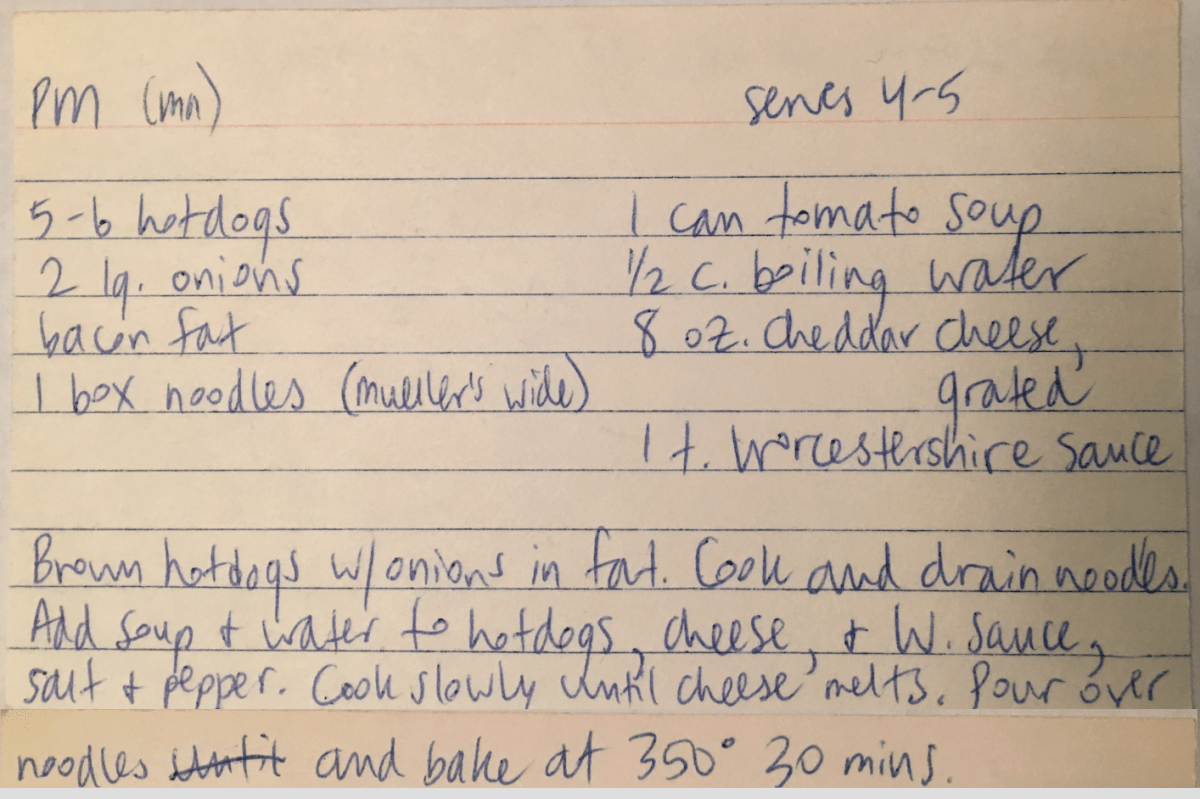 PM (ma) serves 4-5
5-6 hotdogs
2 lg. onions
bacon fat
1 box noodles (mueller's wide)
1 can tomato soup
1/2 c. boiling water
8 oz. cheddar cheese,
grated
1 t. Worcestershire sauce
Brown hotdogs w/onions in fat. Cook and drain noodles.
Add soup & water to hotdogs, cheese, & W. Sauce,
salt & pepper. Cook slowly until cheese melts. Pour over
noodles until and bake at 350° 30 mins.